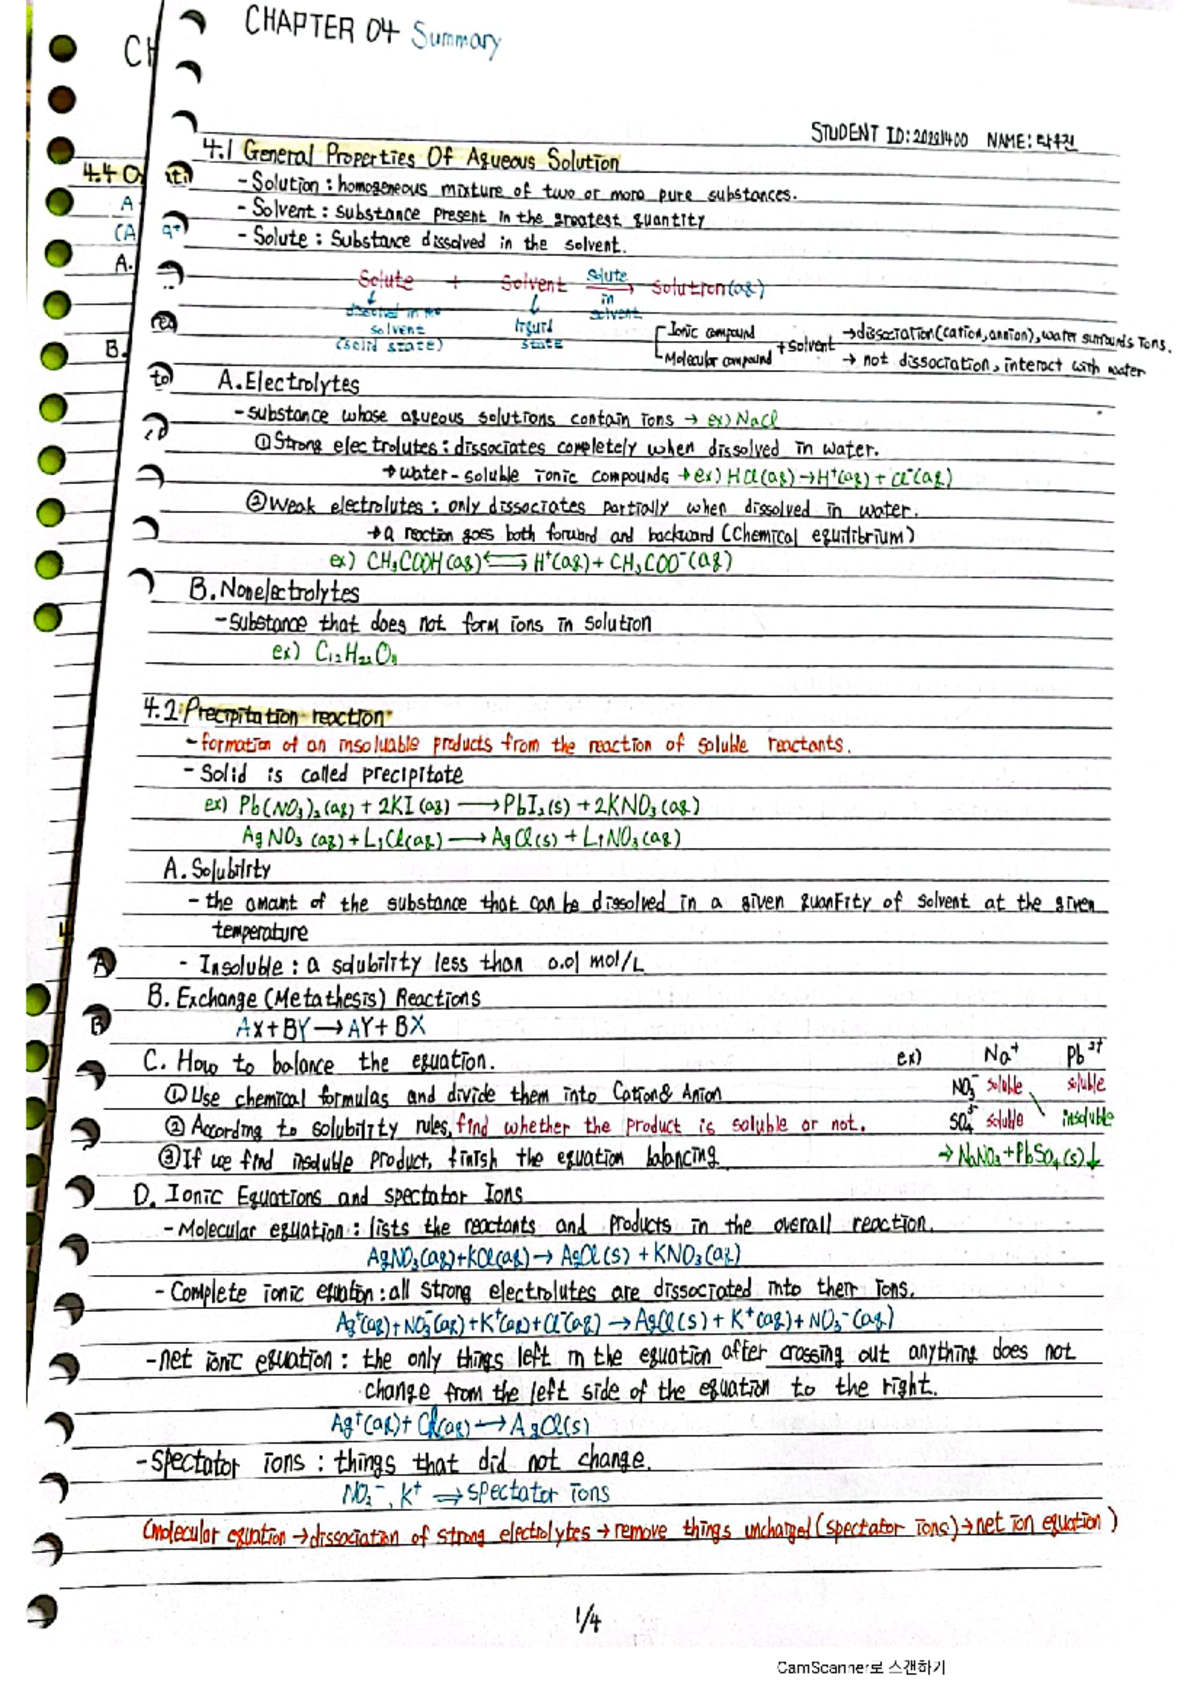 CHAPTER 04 Summary
CH
STUDENT ID: NAME:
4.1 General Properties Of Aqueous Solution
- Solution : homogeneous mixture of two or more pure substances.
- Solvent : substance present in the greatest quantity
- Solute : Substance dissolved in the solvent.
Solute + Solvent solute in solvent → solution(aq)
↓ dissolved in the solvent (solid state)
↓ liquid state
Ionic compound
Molecular compound
+ solvent
→ dissociation(cation, annion), water surrounds ions.
→ not dissociation, interact with water
A. Electrolytes
- substance whose aqueous solutions contain ions → ex) NaCl
① Strong electrolutes : dissociates completely when dissolved in water.
→ water-soluble ionic compounds → ex) HCl(aq) → H⁺(aq) + Cl⁻(aq)
② Weak electrolutes : only dissociates partially when dissolved in water.
→ a reaction goes both forward and backward (Chemical equilibrium)
ex) CH₃COOH(aq) ⇌ H⁺(aq) + CH₃COO⁻(aq)
B. Nonelectrolytes
- Substance that does not form ions in solution
ex) C₁₂H₂₂O₁₁
4.2 Precipitation reaction
- formation of an insoluable products from the reaction of soluble reactants.
- Solid is called precipitate
ex) Pb(NO₃)₂(aq) + 2KI(aq) → PbI₂(s) + 2KNO₃(aq)
AgNO₃(aq) + LiCl(aq) → AgCl(s) + LiNO₃(aq)
A. Solubility
- the amant of the substance that can be dissolved in a given quantity of solvent at the given
temperature
- Insoluble : a solubility less than 0.01 mol/L
B. Exchange (Metathesis) Reactions
AX + BY → AY + BX
C. How to balance the equation.
① Use chemical formulas and divide them into Cation & Anion
② According to solubility rules, find whether the product is soluble or not.
③ If we find insoluble product, finish the equation balancing
ex) Na⁺ Pb²⁺
NO₃⁻ soluble soluble
soluble insoluble
→ NaNO₃ + PbSO₄(s)↓
D. Ionic Equations and spectator Ions
- Molecular equation : lists the reactants and products in the overall reaction.
AgNO₃(aq) + KCl(aq) → AgCl(s) + KNO₃(aq)
- Complete ionic equation : all strong electrolutes are dissociated into their ions.
Ag⁺(aq) + NO₃⁻(aq) + K⁺(aq) + Cl⁻(aq) → AgCl(s) + K⁺(aq) + NO₃⁻(aq)
- net ionic equation : the only things left in the equation after crossing out anything does not
change from the left side of the equation to the right.
Ag⁺(aq) + Cl(aq) → AgCl(s)
- Spectator ions : things that did not change.
NO₃⁻, K⁺ ⇒ spectator ions
(molecular equation → dissociation of strong electrolytes → remove things uncharged (spectator ions) → net ion equation)
1/4
CamScanner로 스캔하기